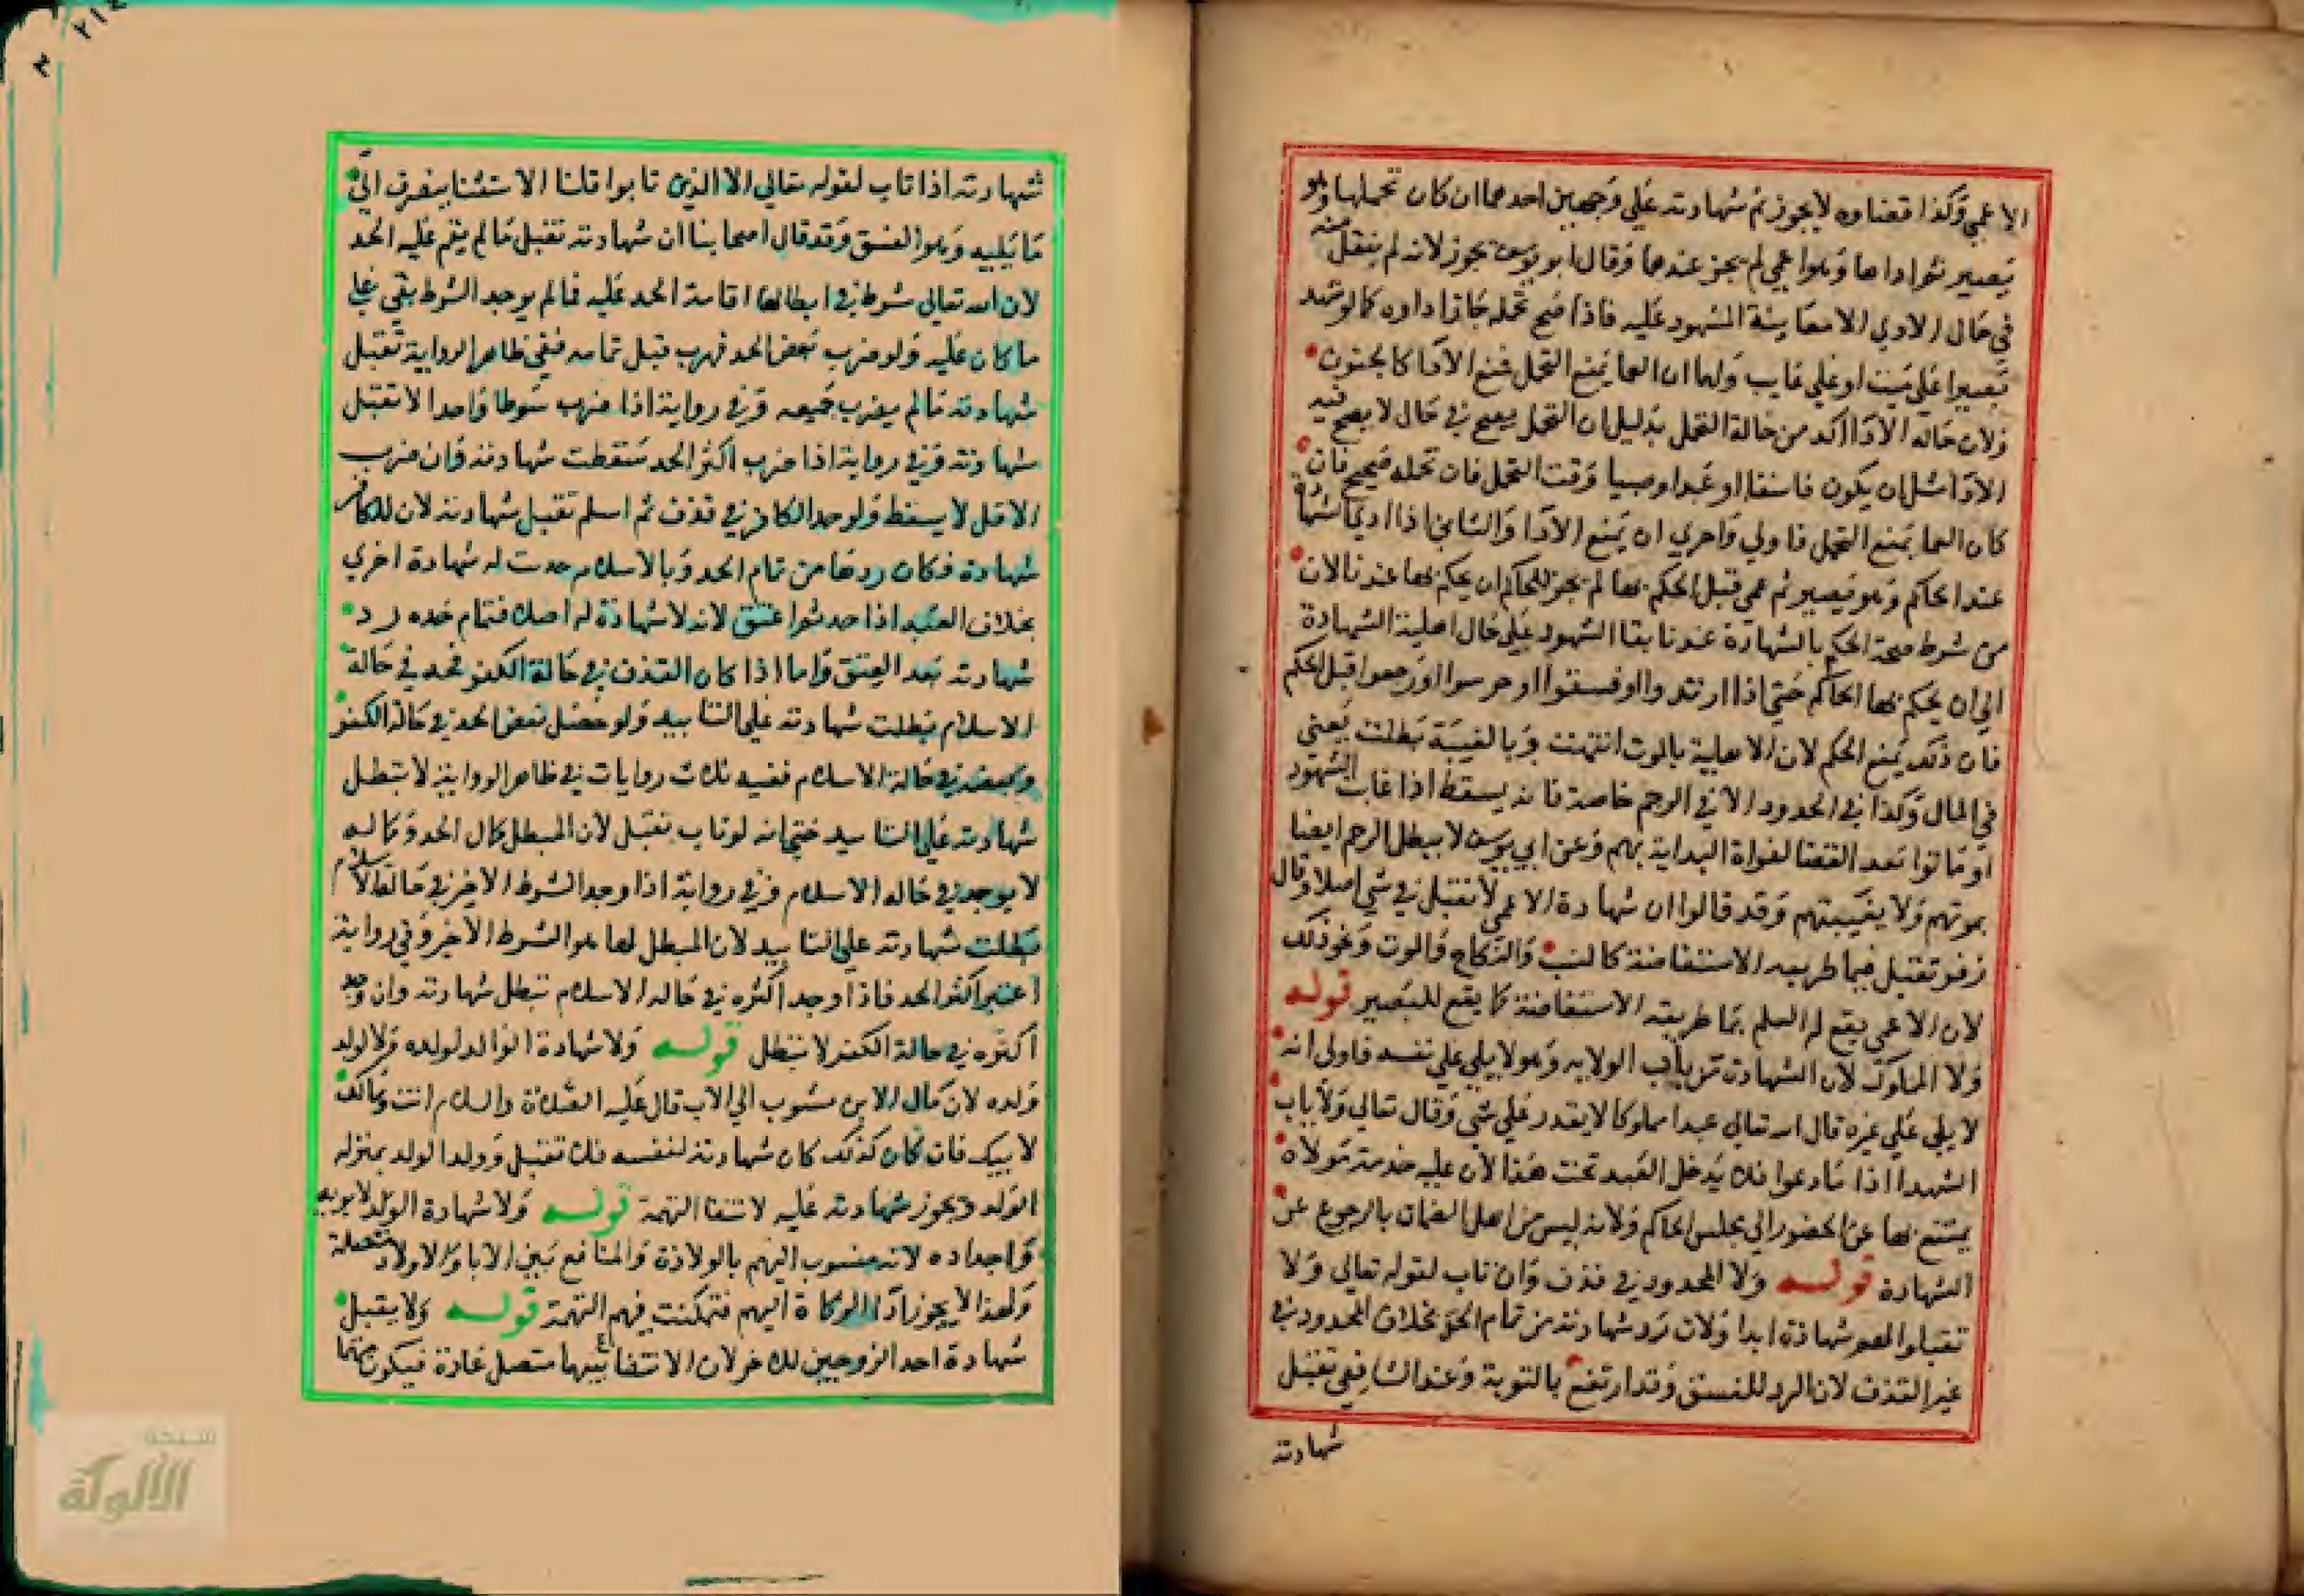 الاعمي وكذا قضاوه لا يجوز ثم شهادته علي وجهين احدهما ان كان تحملها وهو
بصير ثم اداها وهو اعمي لم يجز عندهما وقال ابو يوسف يجوز لانه لم ينقل منه
في حال الادي الا معاينة المشهود عليه فاذا صح تحمله جاز اداوه كما لو شهد
بصيرا علي ميت او علي غايب ولهما ان العما يمنع التحمل فمنع الادا كالجنون
ولان حاله الادا اكد من حالة التحمل بدليل ان التحمل يصح في حال لا يصح فيه
الادا مثل ان يكون فاسقا او عبدا او صبيا وقت التحمل فان تحمله صحيح فان
كان العما يمنع التحمل فاولي واحري ان يمنع الادا والثاني اذا ادي الشهادة
عند الحاكم وهو بصير ثم عمي قبل الحكم بها لم يجز للحاكم ان يحكم بها عندنا لان
من شرط صحة الحكم بالشهادة عندنا بقا الشهود علي حال اهلية الشهادة
الي ان يحكم بها الحاكم حتي اذا ارتدوا او فسقوا او خرسوا او رجعوا قبل الحكم
فان ذلك يمنع الحكم لان الاهلية بالموت انتهت وبالغيبة بطلت يعني
في المال وكذا في الحدود الا في الرجم خاصة فانه يسقط اذا غاب الشهود
او ماتوا بعد القضا لفواة البداية بهم وعن ابي يوسف لا يبطل الرجم ايضا
بموتهم ولا بغيبتهم وقد قالوا ان شهادة الاعمي لا تقبل في شي اصلا وقال
زفر تقبل فيما طريقه الاستفاضة كالنسب والنكاح والموت ونحو ذلك
لان الاعمي يقع له العلم بما طريقه الاستفاضة كما يقع للبصير قوله
ولا المملوك لان الشهادة من باب الولايه وهو لا يلي علي نفسه فاولى انه
لا يلي علي غيره قال الله تعالي عبدا مملوكا لا يقدر علي شي وقال تعالي ولا ياب
الشهدا اذا ما دعوا فلا يدخل العبد تحت هذا لان عليه خدمة مولاه
يمتنع بها عن الحضور الي مجلس الحاكم ولانه ليس من اهل الضمان بالرجوع عن
الشهادة قوله ولا المحدود في قذف وان تاب لقوله تعالي ولا
تقبلوا لهم شهادة ابدا ولان رد شهادته من تمام الحد بخلاف المحدود في
غير القذف لان الرد للفسق وقد ارتفع بالتوبة وعند الشافعي تقبل
شهادته
شهادته اذا تاب لقوله تعالي الا الذين تابوا قلنا الاستثنا ينصرف الي
ما يليه وهو الفسق وقد قال اصحابنا ان شهادته تقبل ما لم يقم عليه الحد
لان الله تعالي شرط في ابطالها اقامة الحد عليه فما لم يوجد الشرط بقي علي
ما كان عليه ولو ضرب بعض الحد فهرب قبل تمامه ففي ظاهر الرواية تقبل
شهادته ما لم يضرب جميعه وفي رواية اذا ضرب سوطا واحدا لا تقبل
شهادته وفي رواية اذا ضرب اكثر الحد سقطت شهادته وان ضرب
الاقل لا يسقط ولو حد الكافر في قذف ثم اسلم تقبل شهادته لان للكافر
شهادة فكان ردها من تمام الحد وبالاسلام حدت له شهادة اخري
بخلاف العبد اذا حد ثم اعتق لانه لا شهادة له اصلا فتمام حده رد
شهادته بعد العتق واما اذا كان القذف في حالة الكفر فحد في حالة
الاسلام بطلت شهادته علي التابيد ولو حصل بعض الحد في حالة الكفر
وبعضه في حالة الاسلام ففيه ثلاث روايات في ظاهر الرواية لا تبطل
شهادته علي التابيد حتي انه لو تاب تقبل لان المبطل كمال الحد وكماله
لا يوجد في حاله الاسلام وفي رواية اذا وجد السوط الاخير في حالة الاسلام
بطلت شهادته علي التابيد لان المبطل لها هو السوط الاخير وفي رواية
اعتبر اكثر الحد فاذا وجد اكثره في حاله الاسلام تبطل شهادته وان وجد
اكثره في حالة الكفر لا تبطل قوله ولا شهادة الوالد لولده وولد
ولده لان مال الابن منسوب الي الاب قال عليه الصلاة والسلام انت ومالك
لابيك فان كان كذلك كان شهادته لنفسه فلا تقبل وولد الولد بمنزله
الولد ويجوز شهادته عليه لانتفا التهمة قوله ولا شهادة الولد لابويه
واجداده لانه منسوب اليهم بالولادة والمنافع بين الابا والاولاد متصلة
ولهذا لا يجوز ادا الزكاة اليهم فتمكنت فيهم التهمة قوله ولا يقبل
شهادة احد الزوجين للاخر لان الانتفاع بينهما متصل عادة فيكون متهما
شبكة
الألوكة